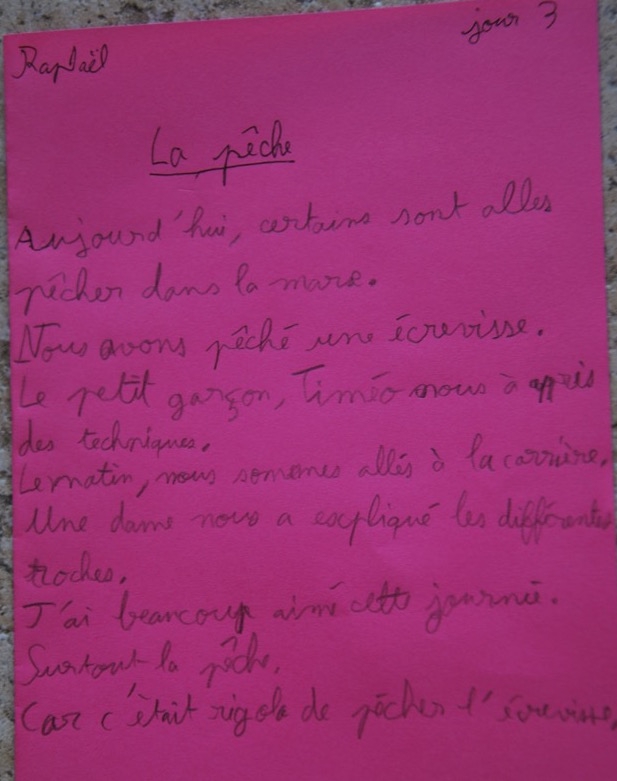 Raphaël
jour 3
La pêche
Aujourd'hui, certains sont alles
pêcher dans la mare.
Nous avons pêché une écrevisse.
Le petit garçon, Timéo nous à appris
des techniques.
Le matin, nous somemes allés à la carrière.
Une dame nous a expliqué les différentes
roches.
J'ai beaucoup aimé cette journé.
Surtout la pêche.
Car c'était rigolo de pêcher l'écrevisse.